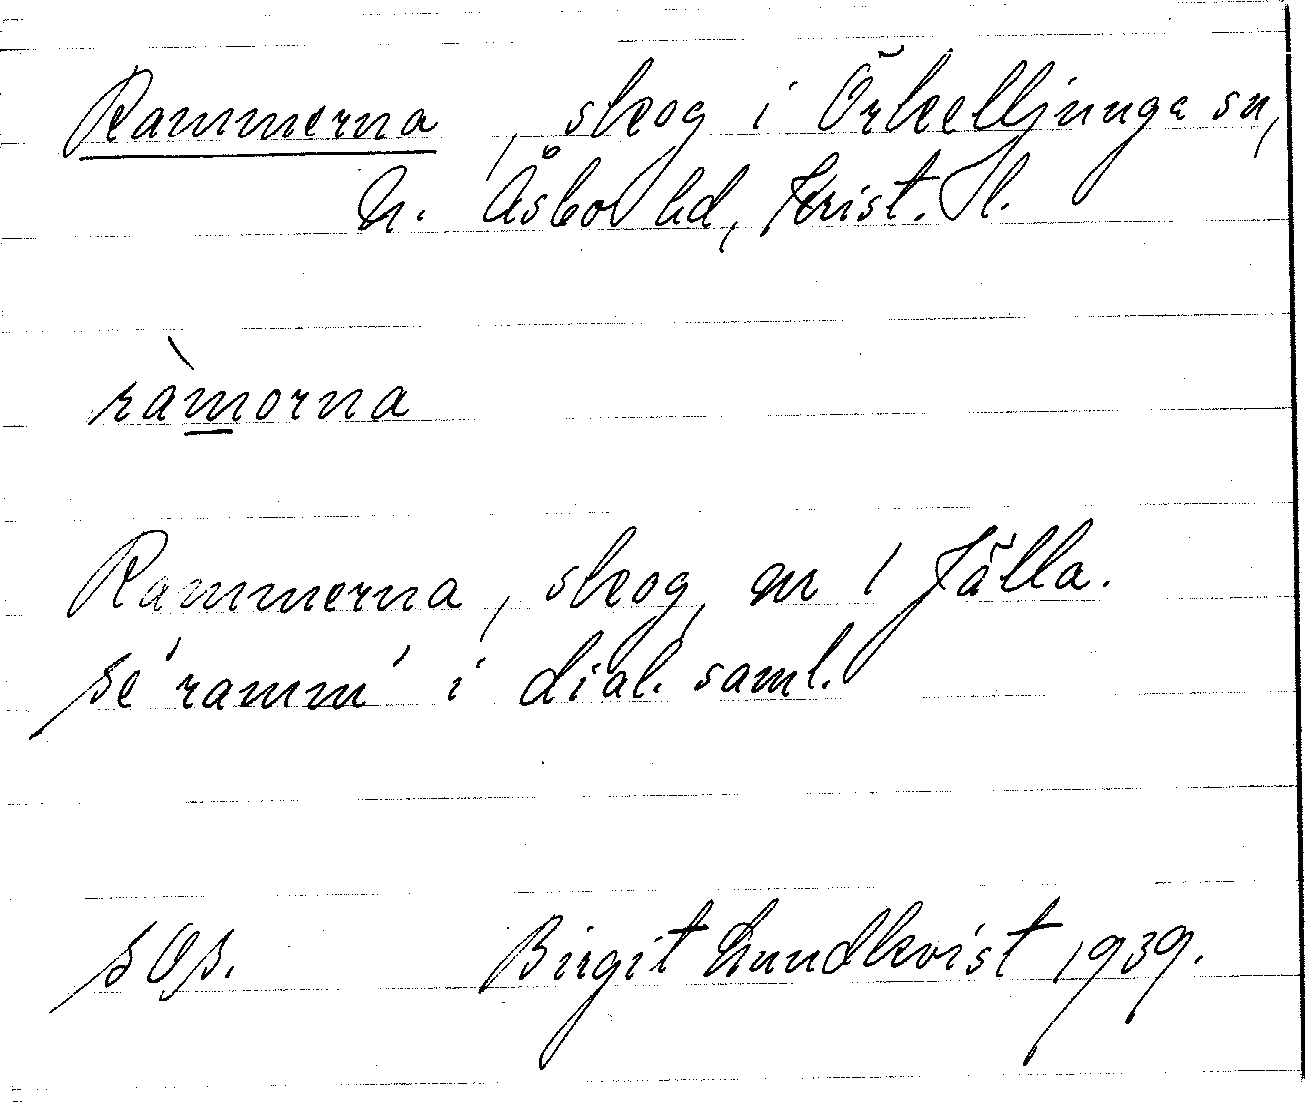 Rammerna, skog i Örkelljunga sn,
N. Åsbo hd, Krist. l.
ràmorna
Rammerna, skog, nr 1 Fälla.
Se 'ramm' i dial. saml.
SOs. Birgit Lundkvist 1939.